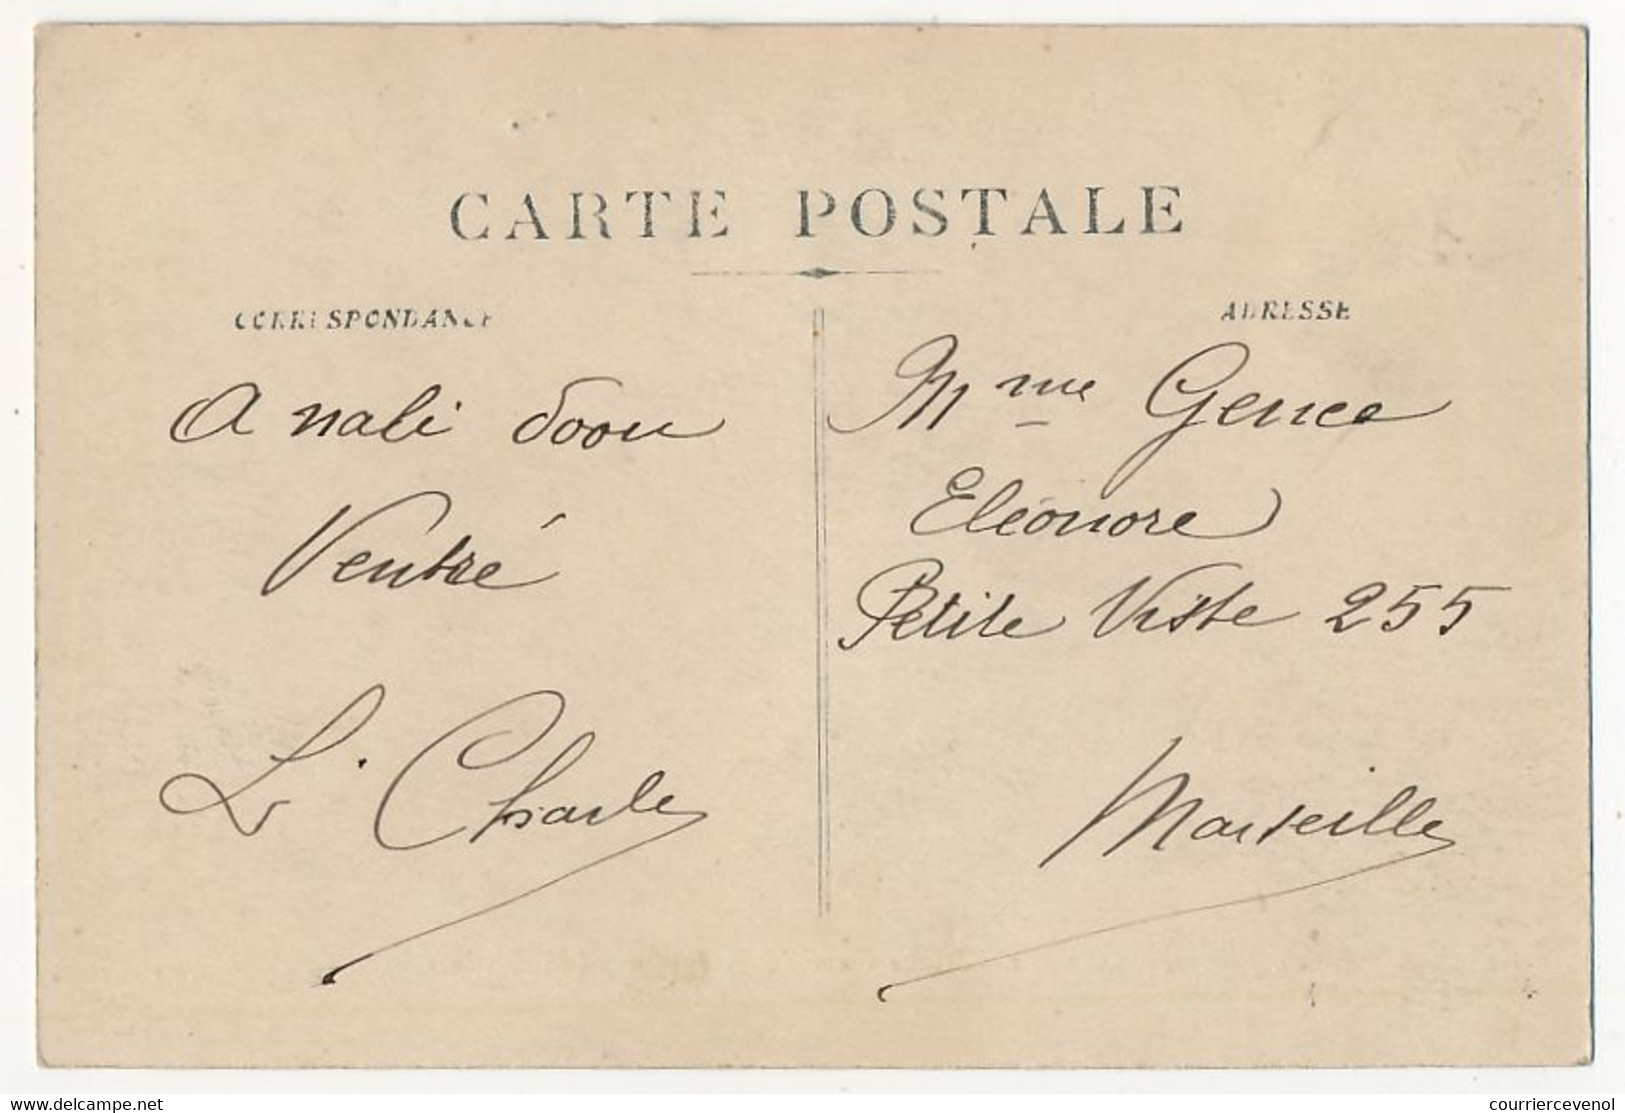 CARTE POSTALE
CORRESPONDANCE
A nali doou
Ventré
L. Charles
ADRESSE
Mme Gence
Eléonore
Petite Viste 255
Marseille
https://www.delcampe.net
courriercevenol